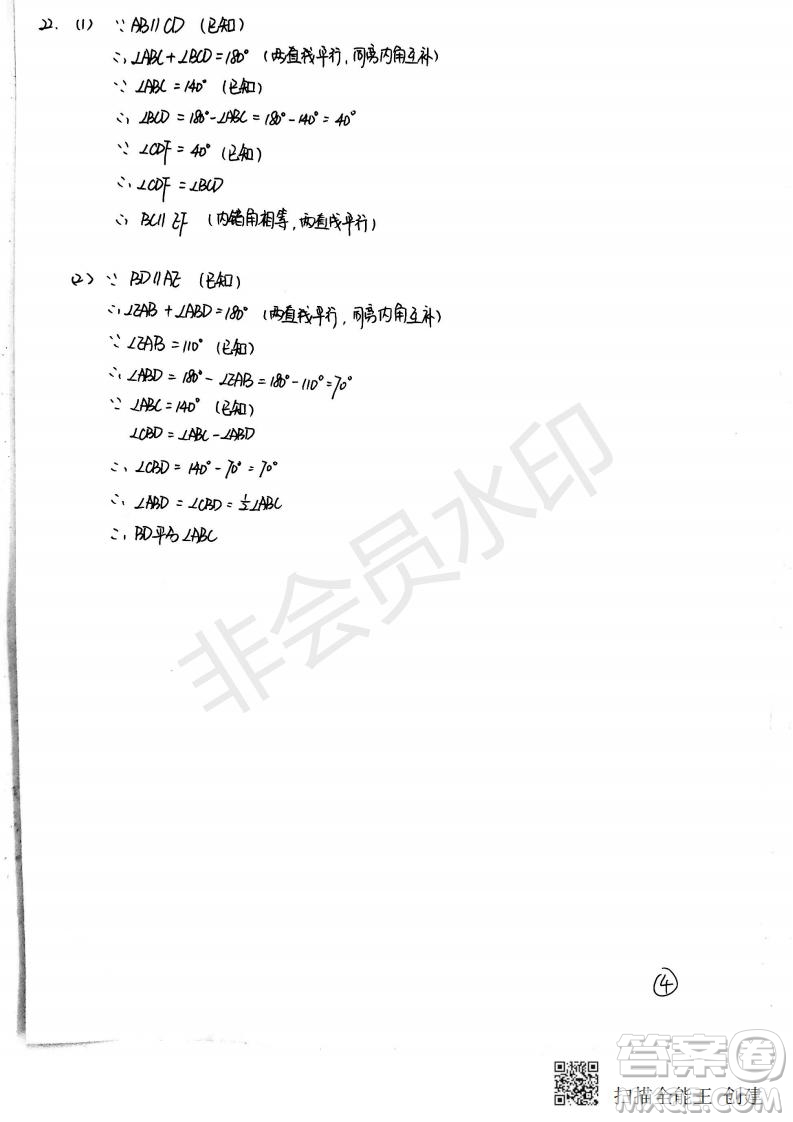 22. (1) ∵ AB∥CD (已知)
∴ ∠ABC + ∠BCD = 180° (两直线平行，同旁内角互补)
∵ ∠ABC = 140° (已知)
∴ ∠BCD = 180° - ∠ABC = 180° - 140° = 40°
∵ ∠CDF = 40° (已知)
∴ ∠CDF = ∠BCD
∴ BC∥EF (内错角相等，两直线平行)
(2) ∵ BD∥AE (已知)
∴ ∠EAB + ∠ABD = 180° (两直线平行，同旁内角互补)
∵ ∠EAB = 110° (已知)
∴ ∠ABD = 180° - ∠EAB = 180° - 110° = 70°
∵ ∠ABC = 140° (已知)
∠CBD = ∠ABC - ∠ABD
∴ ∠CBD = 140° - 70° = 70°
∴ ∠ABD = ∠CBD = ½∠ABC
∴ BD平分∠ABC
非会员水印
④
答案卷
MXQE.COM
扫描全能王 创建